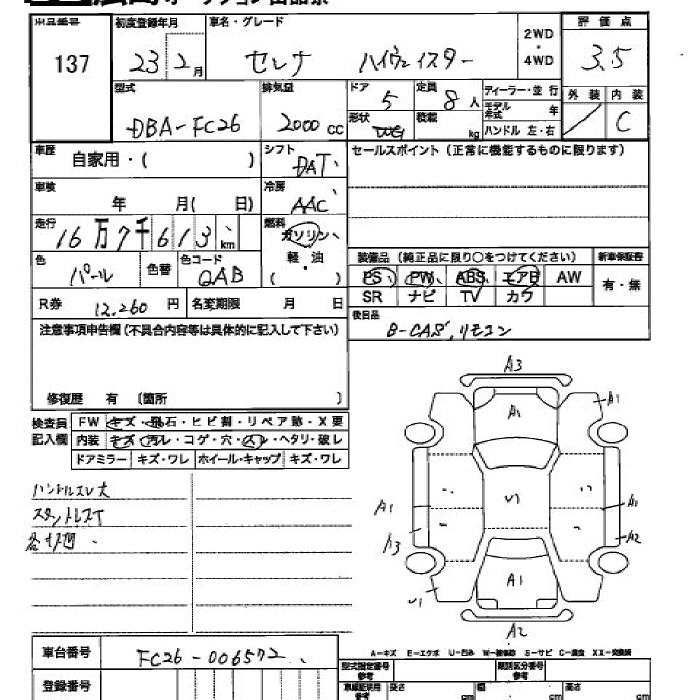 出品番号 初度登録年月 車名・グレード 2WD・4WD 評価点
137 23 2月 セレナ ハイウェイスター 3.5
型式 排気量 ドア 5 定員 8人 ディーラー・並行 外装 内装
DBA-FC26 2000cc 形状 積載 kg モデル年式 年 ハンドル 左・右 C
車歴 自家用・( ) シフト DAT セールスポイント(正常に機能するものに限ります)
車検 年 月( 日) 冷房 AAC
走行 16万7千613km 燃料 ガソリン・軽・油 ( )
色 パール 色替 色コード QAB 装備品(純正品に限り○をつけてください) 新車保証書
PS PW ABS エアB AW 有・無
R券 12,260円 名変期限 月 日 SR ナビ TV カワ
注意事項申告欄(不具合内容等は具体的に記入して下さい) 後日品 B-CAS、リモコン
修復歴 有 〔箇所 〕
検査員記入欄 FW キズ・飛石・ヒビ割・リペア跡・X要
内装 キズ・汚レ・コゲ・穴・スレ・ヘタリ・破レ
ドアミラー キズ・ワレ ホイール・キャップ キズ・ワレ
ハンドルスレ大
A3
A1 A1
A1 A1
A3 A2
A1
A2
A-キズ E-エクボ U-凹み W-補修跡 S-サビ C-腐食 XX-交換済
車台番号 FC26-006572
登録番号 型式指定番号 参考 類別区分番号 参考
長さ cm 幅 cm 高さ cm